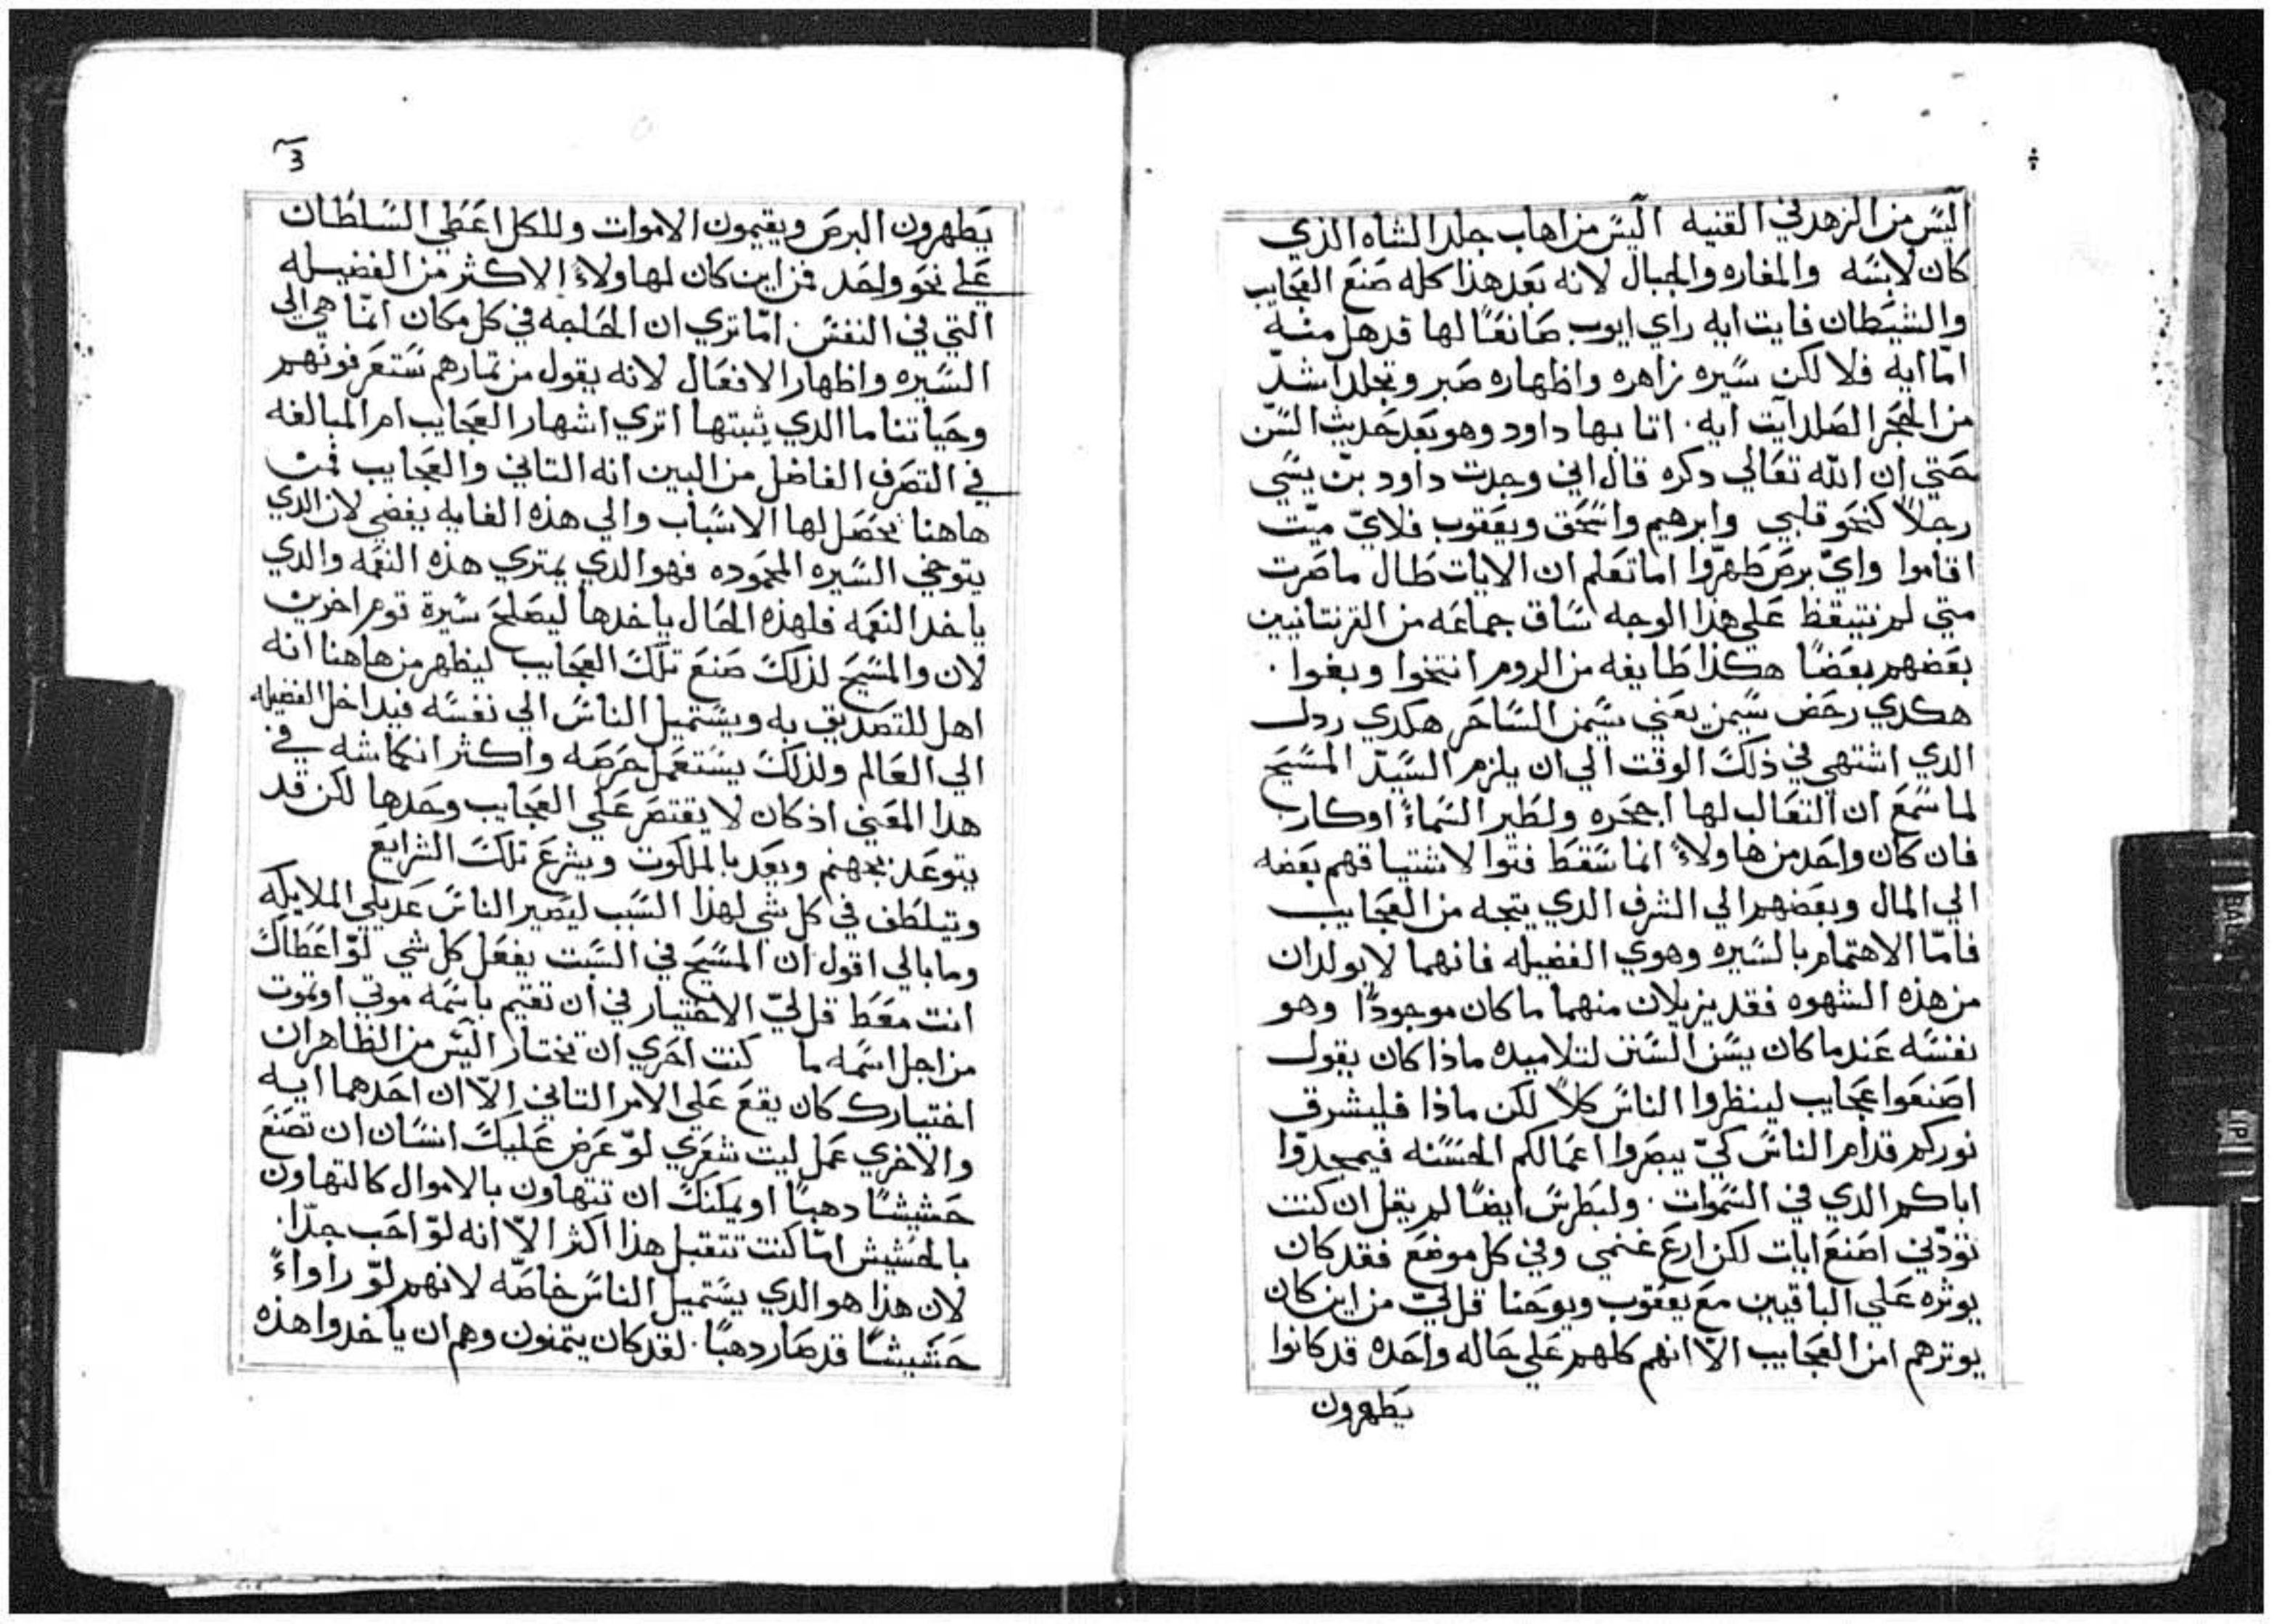 اليس من الزهد في القنيه اليس من اهاب جلد الشاه الذي
كان لابسه والمغاره والجبال لانه بعد هذا كله صنع العجايب
والشيطان فايت ايه راي ايوب صانعًا لها قد هل منه
امّا ايه فلا لكن سيره زاهره واظهاره صبر وتجلد اشدّ
من الحجر الصلد آيت ايه. اتا بها داود وهو بعد حديث السّن
حتي ان الله تعالي دكره قال اني وجدت داود بن يسي
رجلاً كنحو قلبي وابرهيم واسحق ويعقوب فلايّ ميّت
اقاموا وايّ برص طهرّوا اما تعلم ان الايات طال ما ضرت
متي لم نتيقظ علي هذا الوجه ساق جماعه من القرنتانيين
بعضهم بعضًا هكذا طايفه من الروم انتخوا وبغوا .
هكدي رحض سيمن يعني سيمن الساحر هكدي ردل
الدي اشتهي في ذلك الوقت الي ان يلزم السيّد المسيح
لما سمع ان التعالب لها اجحره ولطير السماءً اوكار
فان كان واحد من هاولاءً انما سقط فتوا لاشتياقهم بعضه
الي المال وبعضهم الي الشرف الدي يتجه من العجايب
فامّا الاهتمام بالسيره وهوي الفضيله فانهما لا يولدان
من هذه الشهوه فقد يزيلان منهما ما كان موجودًا وهو
نفسه عندما كان يسن السنن لتلاميده ماذا كان يقول
اصنعوا عجايب لينظروا الناس كلاً لكن ماذا فليشرق
نوركم قدام الناس كيّ يبصروا اعمالكم الحسنه فيمجدّوا
اباكم الدي في السموات . ولبطرس ايضًا لم يقل ان كنت
تودّني اصنع ايات لكن ارع غنمي وفي كل موضع فقد كان
يوثره علي الباقيين مع يعقوب ويوحنا قل ليّ من اين كان
يوثرهم امن العجايب الاّ انهم كلهم علي حاله واحده قد كانوا
يطهرون
يطهرون البرص ويقيمون الاموات وللكل اعطي السلطان
علي نحو واحد فمن اين كان لهاولاءً الاكثر من الفضيله
التي في النفس . امّا تري ان الحاجه في كل مكان انمّا هي الي
السيره واظهار الافعال لانه يقول من ثمارهم ستعرفونهم
وحياتنا ما الدي يثبتها اتري اشهار العجايب ام المبالغه
في التصرف الفاضل من البين انه التاني والعجايب فمن
هاهنا تحصل لها الاسباب والي هذه الغايه يفضي لان الدي
يتوخي السيره المحموده فهو الدي يمتري هذه النعمه والدي
ياخد النعمه فلهذه الحال ياخدها ليصلح سيرة قوم اخرين
لان والمسيح لذلك صنع تلك العجايب ليظهر من هاهنا انه
اهل للتصديق به ويستميل الناس الي نفسه فيداخل الفضيله
الي العالم ولذلك يستعمل حرصه واكثر انكماشه في
هدا المعني اذ كان لا يقتصر علي العجايب وحدها لكن قد
يتوعد بجهنم ويعد بالملكوت ويشرع تلك الشرايع
ويتلطف في كل شي لهذا السبب ليصير الناس عديلي الملايكه
وما بالي اقول ان المسيح في السبت يفعل كل شي لوّ اعطاك
انت معط قل ليّ الاختيار في ان تقيم باسمه موتي او تموت
من اجل اسمه ما كنت احري ان تختار اليس من الظاهر ان
اختيارك كان يقع علي الامر التاني الاّ ان احدهما ايه
والاخري عمل ليت شعري لوّ عرض عليك انسان ان تصنع
حشيشًا دهبًا او يمكنك ان تتهاون بالاموال كالتهاون
بالحشيش امّا كنت تتقبل هذا اكثر الاّ انه لوّ احب جدّا .
لان هذا هو الدي يستميل الناس خاصّه لانهم لوّ راواءً
حشيشًا قد صار دهبًا . لقد كان يتمنون وهم ان ياخدوا هذه